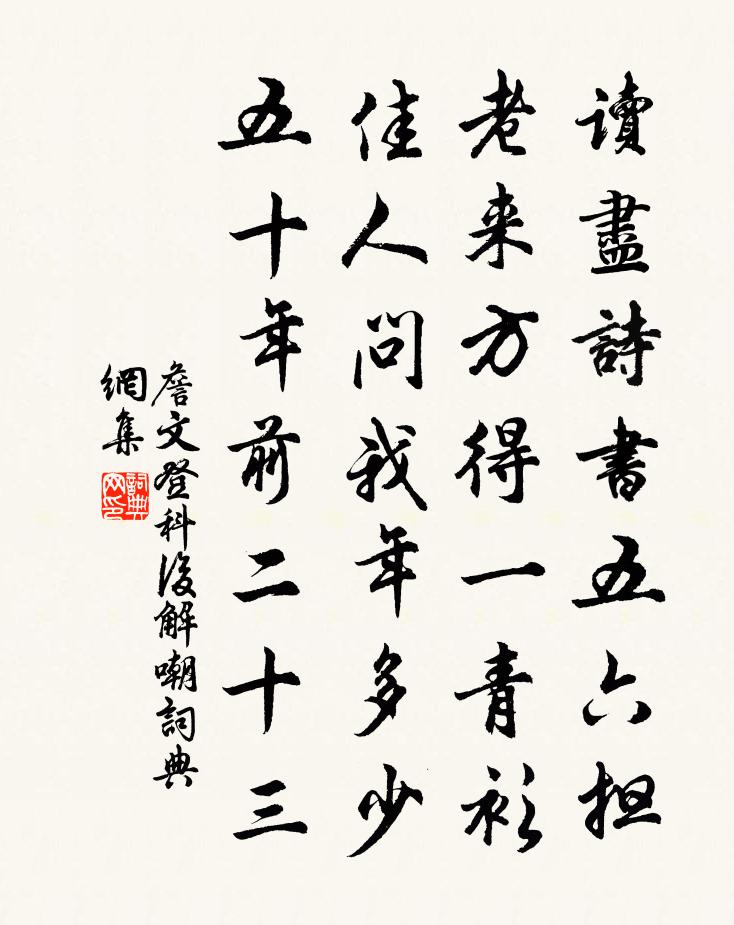 讀盡詩書五六担
老来方得一青衫
佳人問我年多少
五十年前二十三
詹文登科後解嘲詞典
網集
詞典
网印